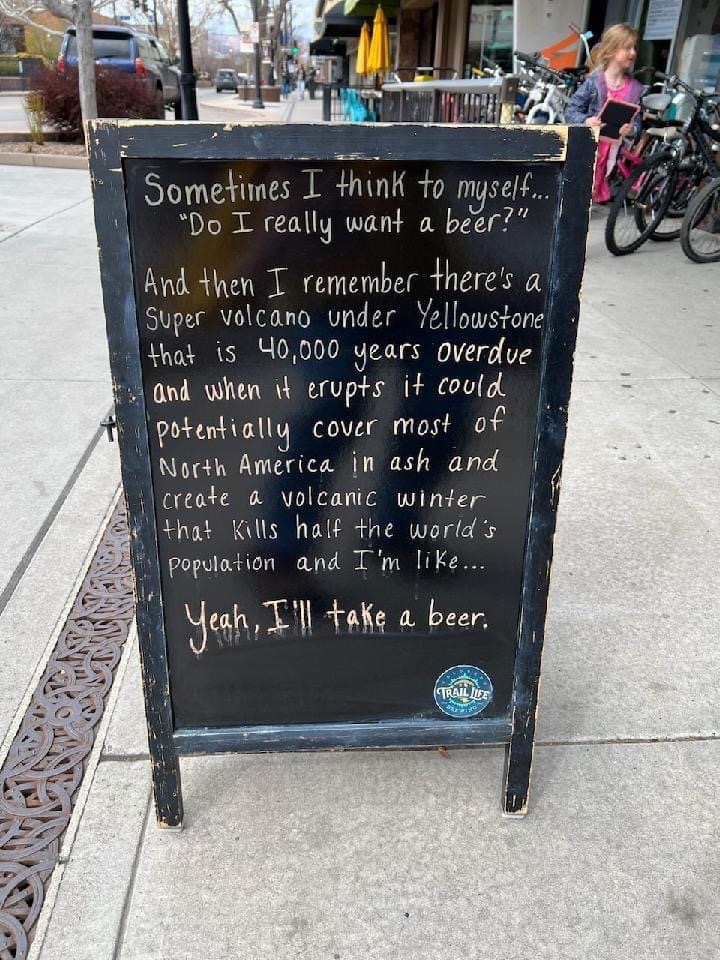 Sometimes I think to myself...
"Do I really want a beer?"
And then I remember there's a
Super volcano under Yellowstone
that is 40,000 years overdue
and when it erupts it could
potentially cover most of
North America in ash and
create a volcanic winter
that kills half the world's
population and I'm like...
Yeah, I'll take a beer.
TRAIL LIFE